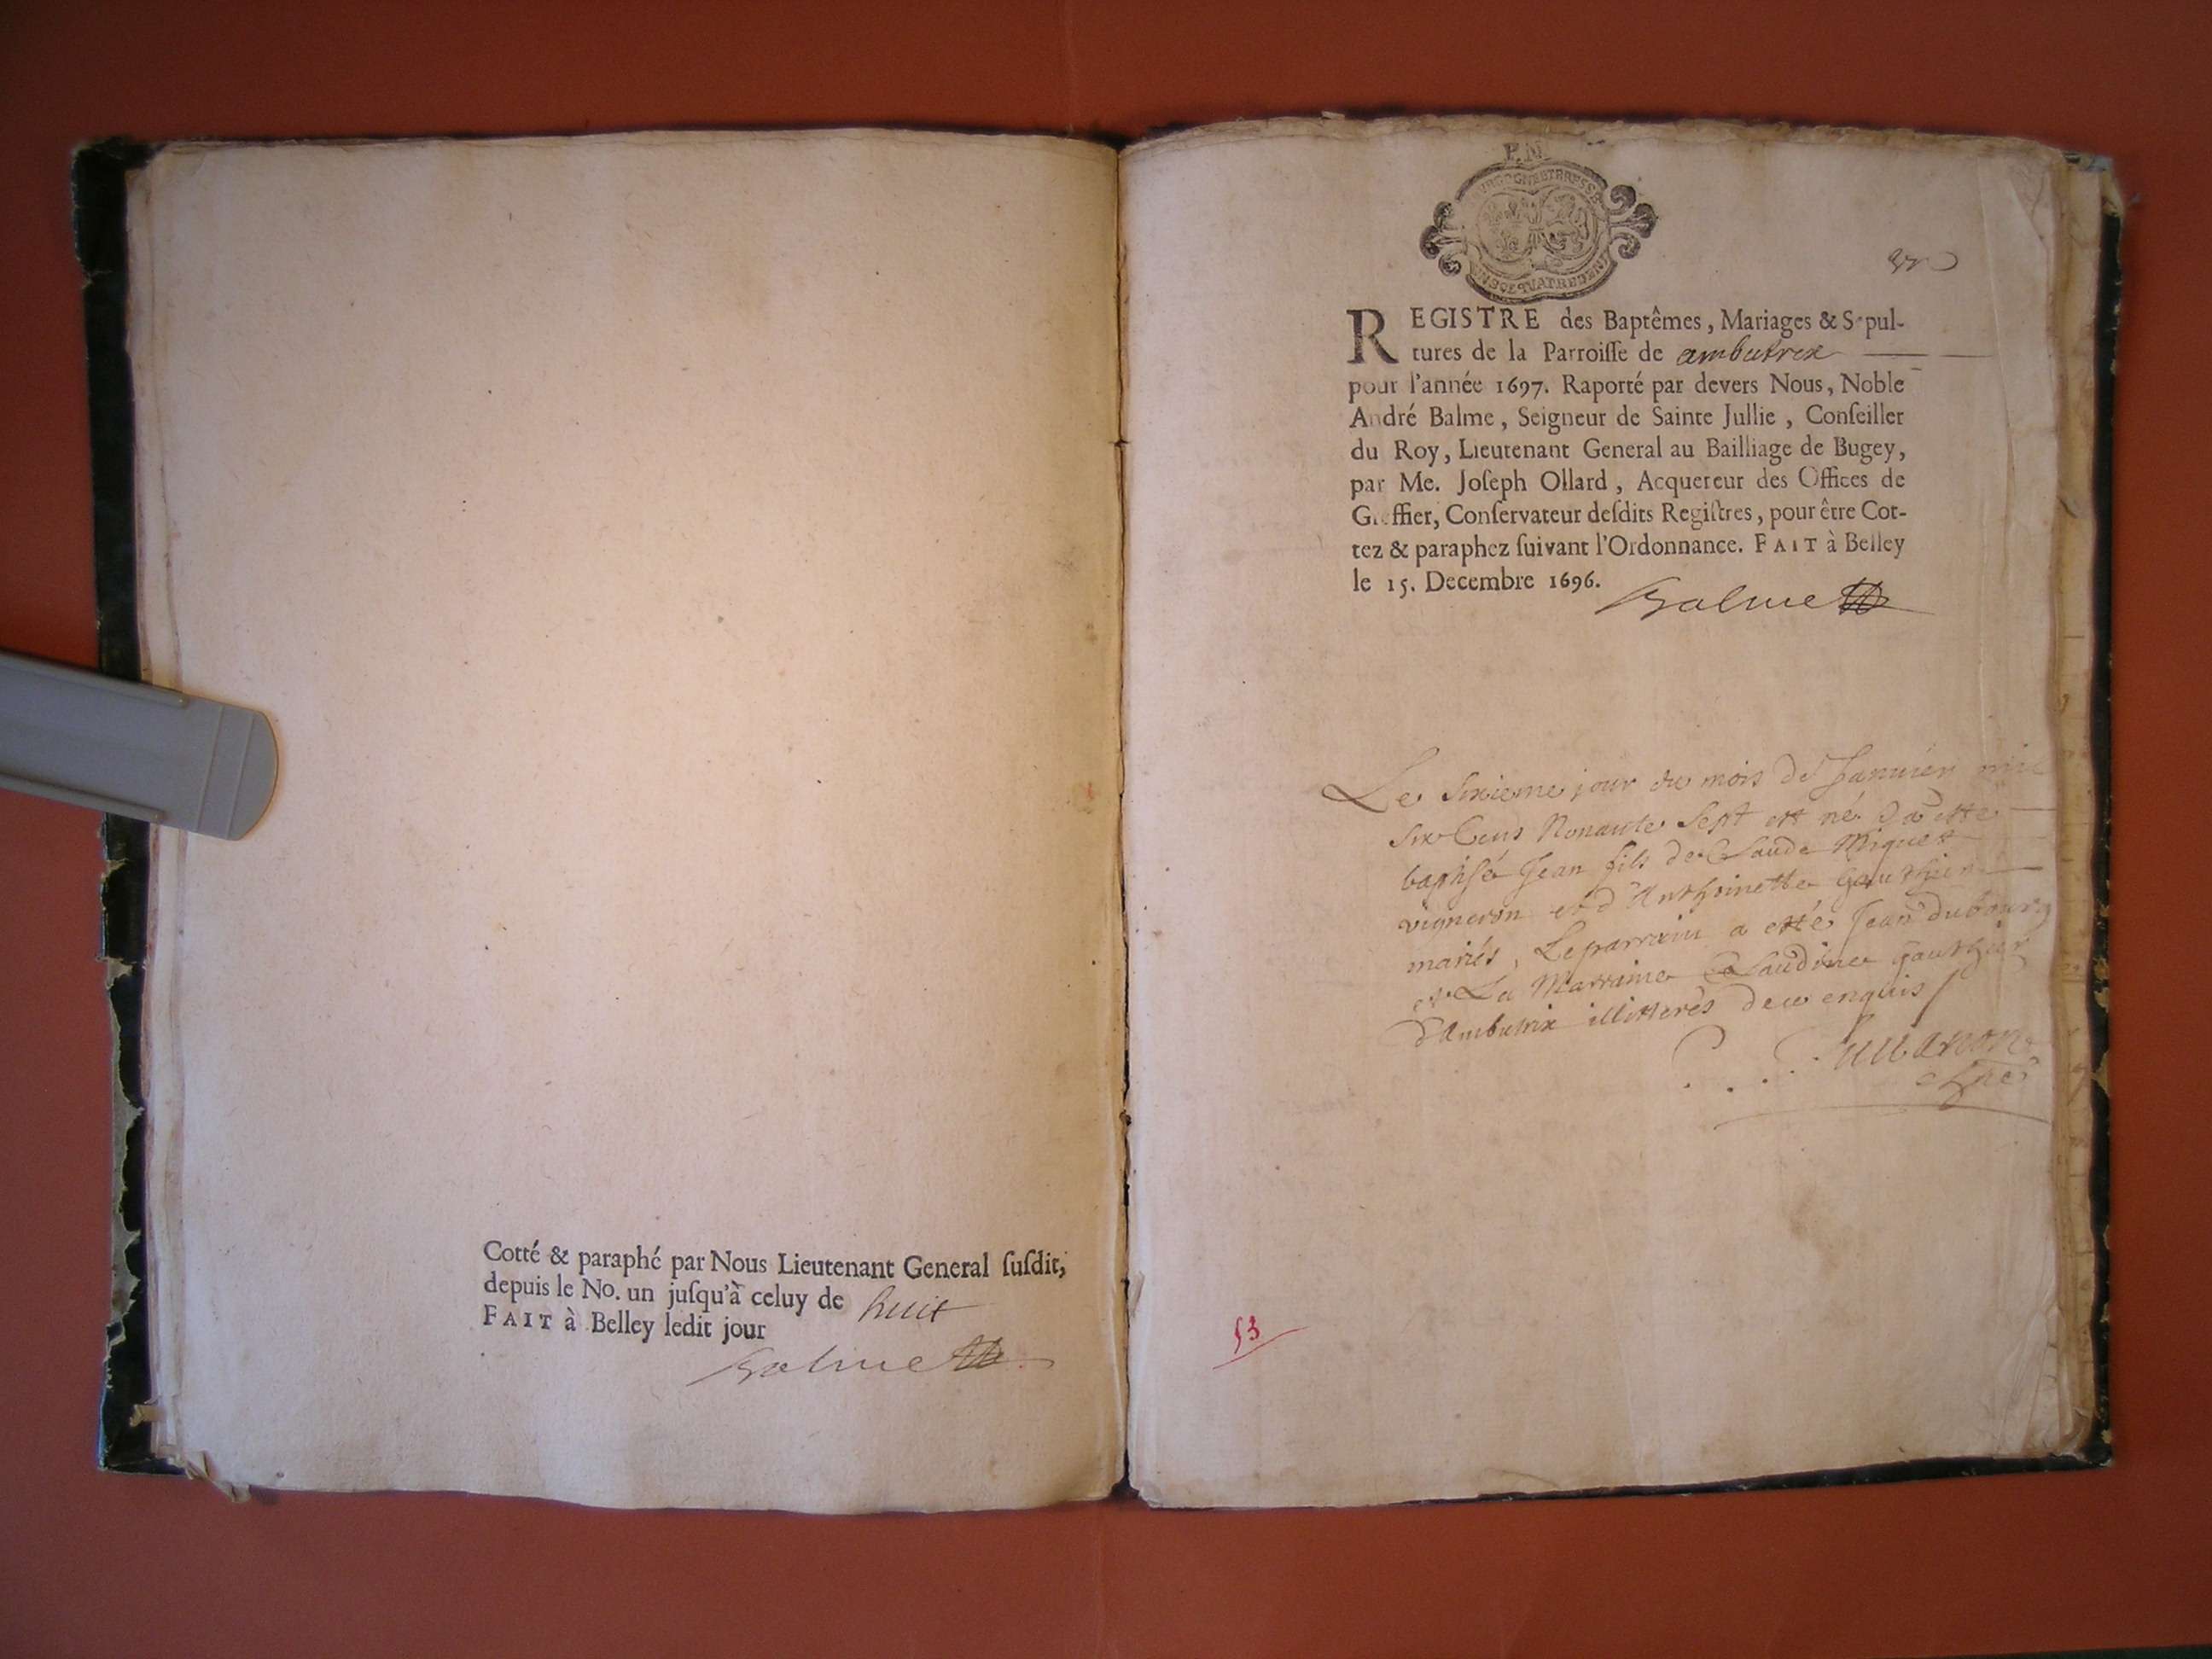 Cotté & paraphé par Nous Lieutenant General ſuſdit,
depuis le No. un juſqu'à celuy de huit
FAIT à Belley ledit jour
Balme
P.M
REGISTRE des Baptêmes, Mariages & Sepul-
tures de la Parroiſſe de ambutrix
pour l'année 1697. Raporté par devers Nous, Noble
André Balme, Seigneur de Sainte Jullie, Conſeiller
du Roy, Lieutenant General au Bailliage de Bugey,
par Me. Joſeph Ollard, Acquereur des Offices de
Greffier, Conſervateur deſdits Regiſtres, pour être Cot-
tez & paraphez ſuivant l'Ordonnance. FAIT à Belley
le 15. Decembre 1696.
Balme
Le Sixieme jour du mois de Januier mil
six Cens Nonante Sept est né & a esté
baptisé Jean fils de Claude Miguet
vigneron et d'Anthoinette Gauthier
mariés, Le parrain a esté Jean dubourg
et La Marraine Claudine Gauthier
d'Ambutrix illitterés de ce enquis
53